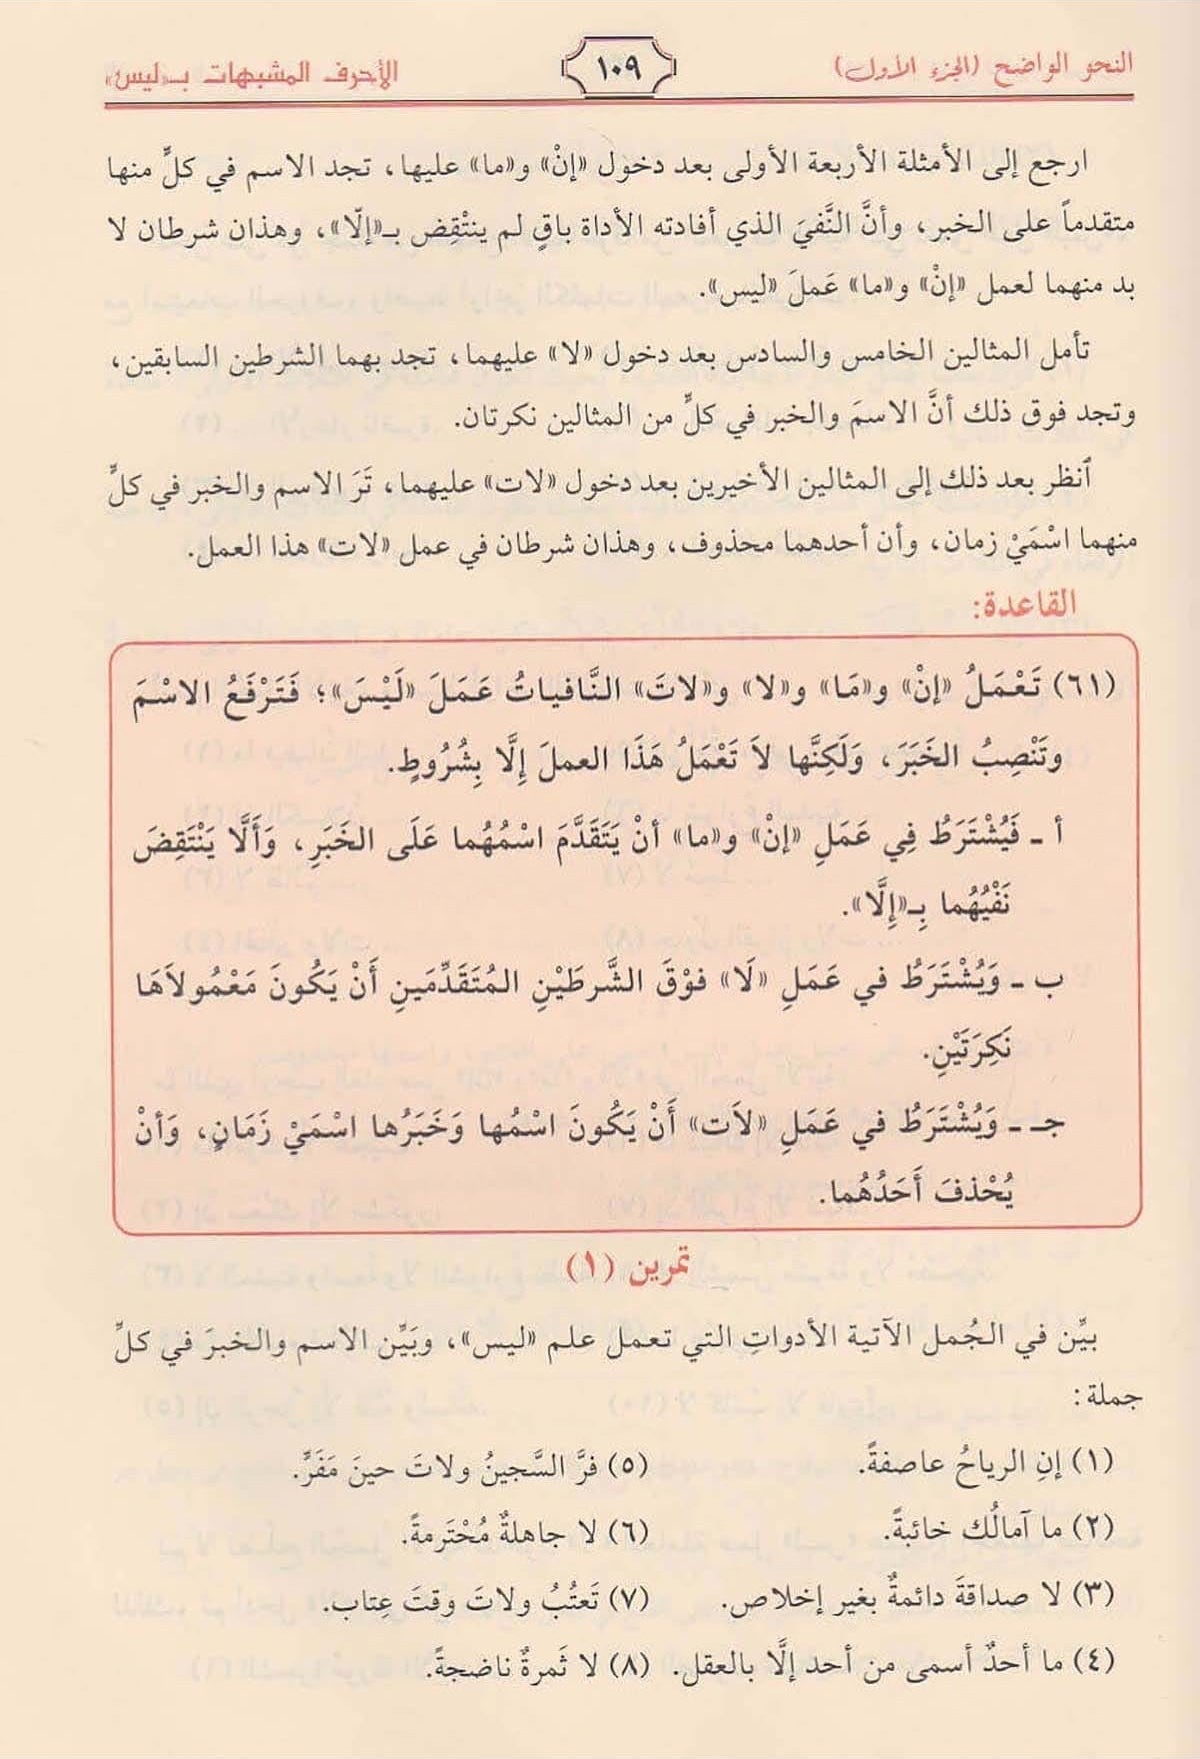 النحو الواضح (الجزء الأول)
١٠٩
الأحرف المشبهات بـ«ليس»
ارجع إلى الأمثلة الأربعة الأولى بعد دخول «إنْ» و«ما» عليها، تجد الاسم في كلٍّ منها
متقدماً على الخبر، وأنَّ النَّفيَ الذي أفادته الأداة باقٍ لم ينتْقِض بـ«إلّا»، وهذان شرطان لا
بد منهما لعمل «إنْ» و«ما» عَملَ «ليس».
تأمل المثالين الخامس والسادس بعد دخول «لا» عليهما، تجد بهما الشرطين السابقين،
وتجد فوق ذلك أنَّ الاسمَ والخبر في كلٍّ من المثالين نكرتان.
ٱنظر بعد ذلك إلى المثالين الأخيرين بعد دخول «لات» عليهما، تَرَ الاسم والخبر في كلٍّ
منهما اسْمَيْ زمان، وأن أحدهما محذوف، وهذان شرطان في عمل «لات» هذا العمل.
القاعدة:
(٦١) تَعْمَلُ «إنْ» و«مَا» و«لا» و«لاتَ» النَّافياتُ عَمَلَ «لَيْسَ»؛ فَتَرْفَعُ الاسْمَ
وتَنْصِبُ الخَبَرَ، وَلَكِنَّها لاَ تَعْمَلُ هَذَا العملَ إِلَّا بِشُرُوطٍ.
أ ـ فَيُشْتَرَطُ فِي عَمَلِ «إنْ» و«ما» أنْ يَتَقَدَّمَ اسْمُهُما عَلَى الخَبَرِ، وَأَلَّا يَنْتَقِضَ
نَفْيُهُما بِـ«إِلَّا».
ب ـ وَيُشْتَرَطُ في عَمَلِ «لَا» فوْقَ الشَّرطَيْنِ المُتَقَدِّمَينِ أَنْ يَكُونَ مَعْمُولاَهَا
نَكِرَتَيْنِ.
جـ ـ وَيُشْتَرَطُ في عَمَلِ «لاَت» أَنْ يَكُونَ اسْمُها وَخَبَرُها اسْمَيْ زَمَانٍ، وَأنْ
يُحْذفَ أَحَدُهُما.
تمرين (١)
بيِّن في الجُمل الآتية الأدواتِ التي تعمل علم «ليس»، وبَيِّن الاسم والخبرَ في كلِّ
جملة:
(١) إنِ الرياحُ عاصفةً.
(٥) فرَّ السَّجينُ ولاتَ حينَ مَفَرٍّ.
(٢) ما آمالُك خائبةً.
(٦) لا جاهلةٌ مُحْتَرمةً.
(٣) لا صداقةَ دائمةٌ بغير إخلاص.
(٧) تَعتُبُ ولاتَ وقتَ عِتاب.
(٤) ما أحدٌ أسمى من أحد إلَّا بالعقل.
(٨) لا ثَمرةٌ ناضجةً.